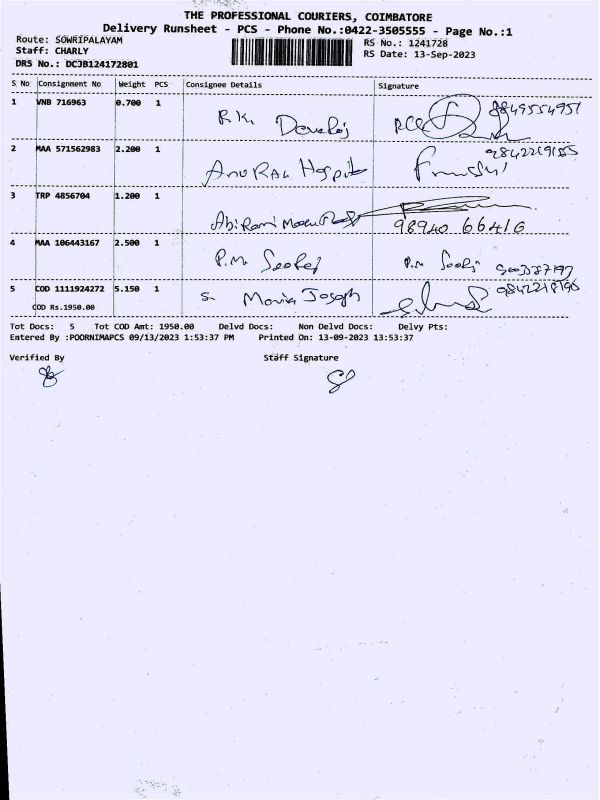 THE PROFESSIONAL COURIERS, COIMBATORE
Delivery Runsheet - PCS - Phone No.:0422-3505555 - Page No.:1
Route: SOWRIPALAYAM RS No.: 1241728
Staff: CHARLY RS Date: 13-Sep-2023
DRS No.: DCJB124172801
S No Consignment No Weight PCS Consignee Details Signature
1 VNB 716963 0.700 1 R.K. Devaraj 9849554951
2 MAA 571562983 2.200 1 9842219155
3 TRP 4856704 1.200 1 Abirami 98940 66416
4 MAA 106443167 2.500 1 P.M. P.M
5 COD 1111924272 5.150 1 S. Maria Joseph 9842218196
COD Rs.1950.00
Tot Docs: 5 Tot COD Amt: 1950.00 Delvd Docs: Non Delvd Docs: Delvy Pts:
Entered By :POORNIMAPCS 09/13/2023 1:53:37 PM Printed On: 13-09-2023 13:53:37
Verified By Staff Signature